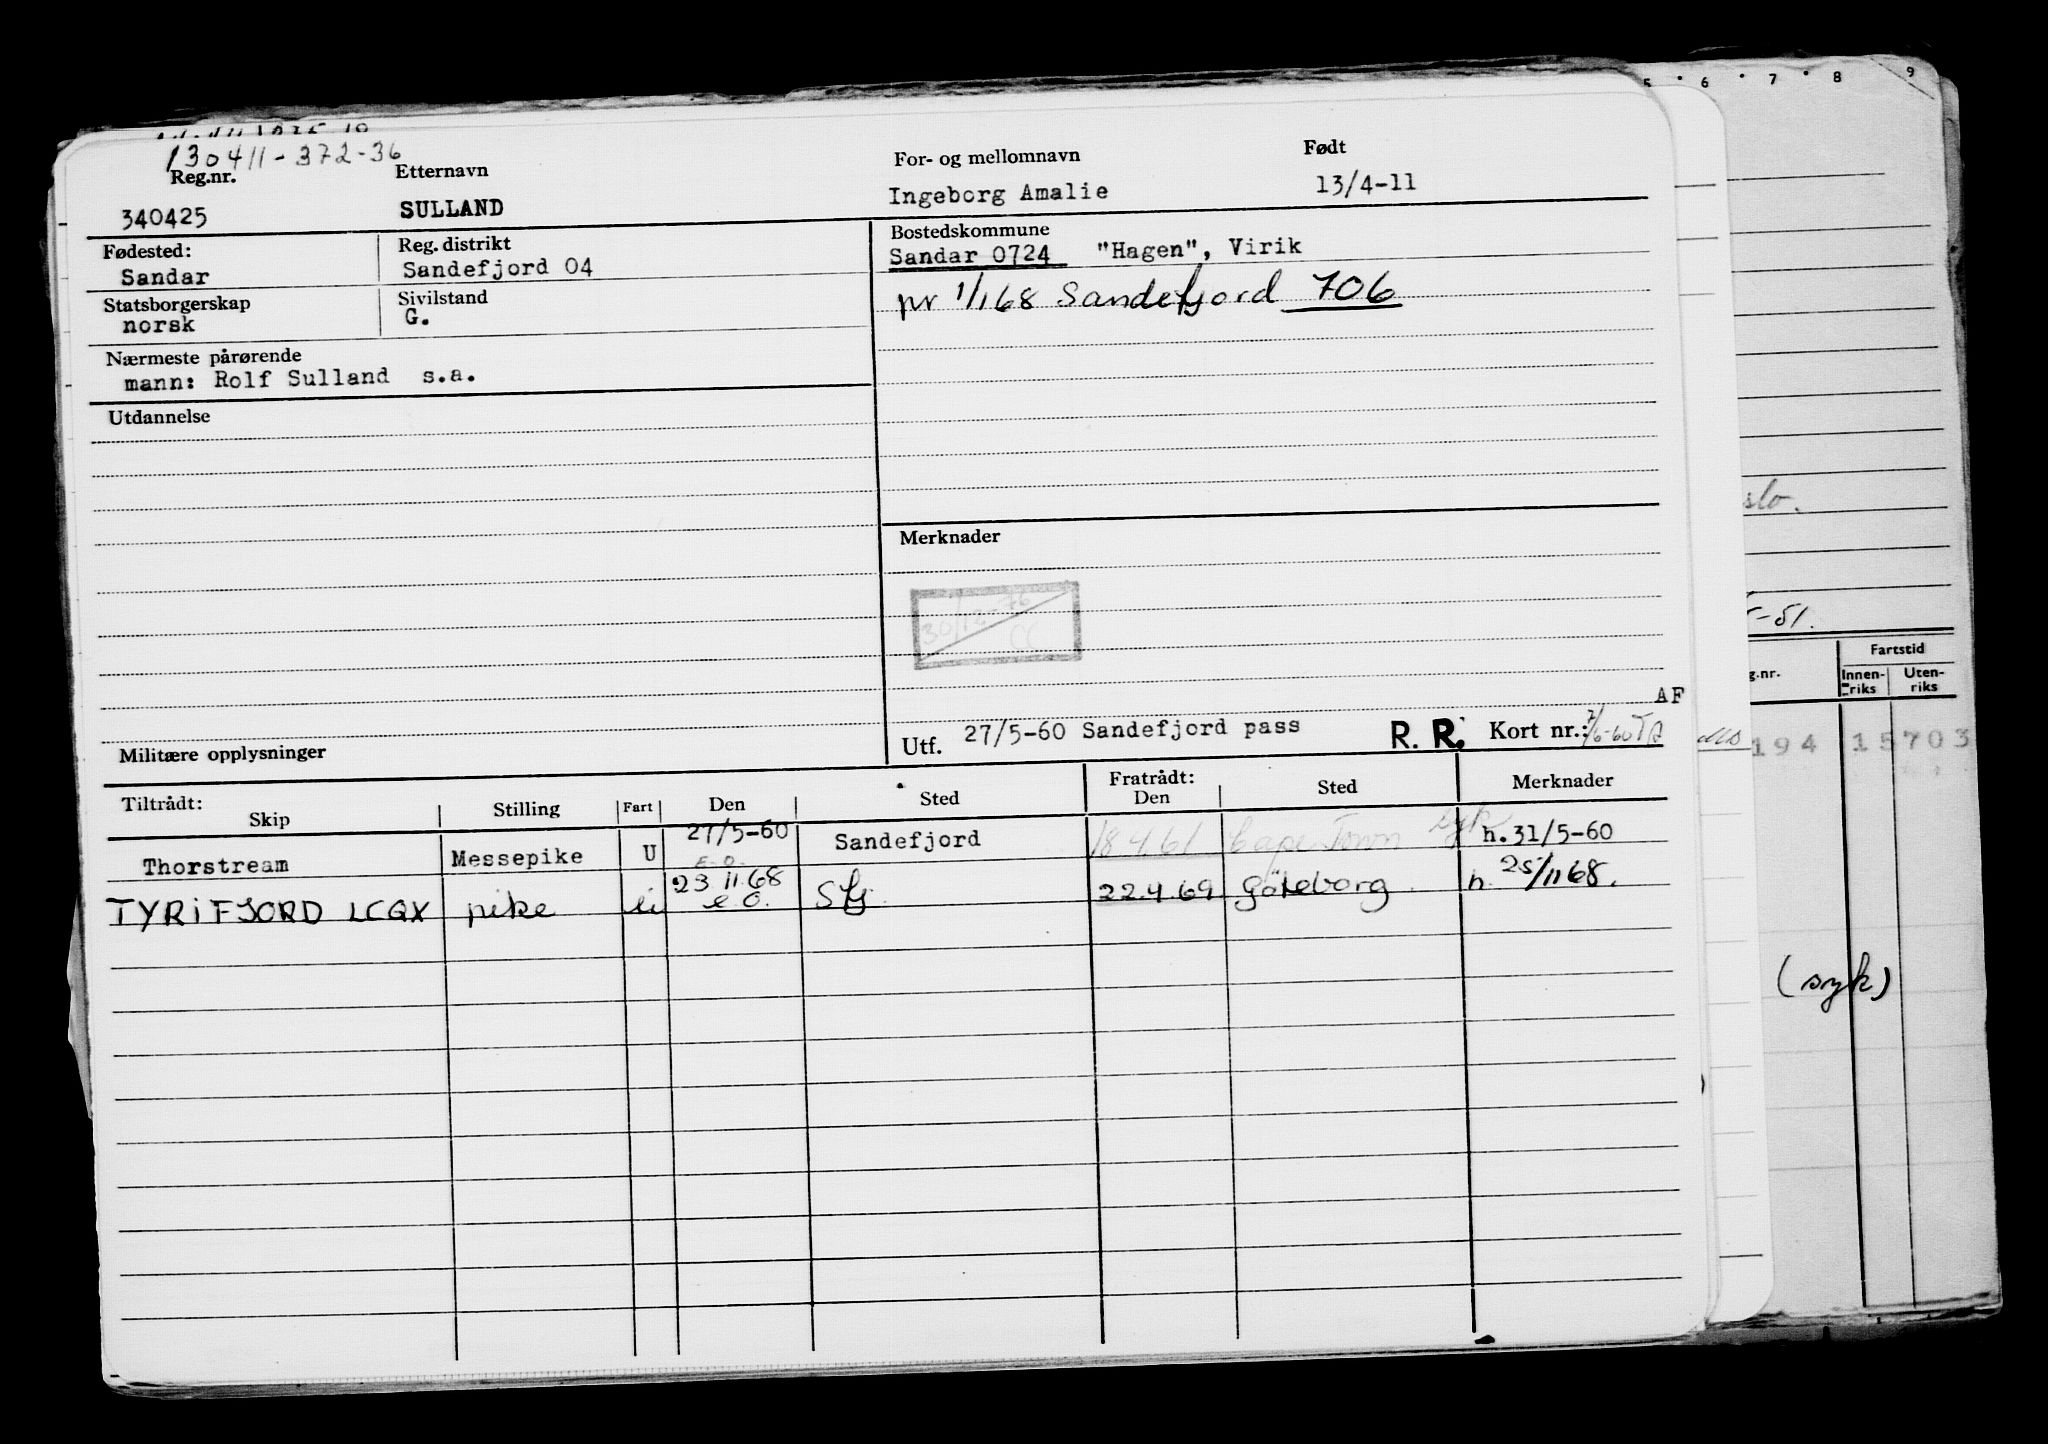 5 · 6 · 7 · 8 9
130411-372-36
Reg.nr. Etternavn For- og mellomnavn Født
340425 SULLAND Ingeborg Amalie 13/4-11
Fødested: Reg. distrikt Bostedskommune
Sandar Sandefjord 04 Sandar 0724 "Hagen", Virik
Statsborgerskap Sivilstand pr 1/1 68 Sandefjord 706
norsk G.
Nærmeste pårørende
mann: Rolf Sulland s.a.
Utdannelse
slo.
Merknader
30/12-76
-51.
Fartstid
g.nr. Innen-riks Uten-riks
AF
Militære opplysninger Utf. 27/5-60 Sandefjord pass R. R. Kort nr.: 7/6-60
194 15703
Tiltrådt: Fratrådt:
Skip Stilling Fart Den Sted Den Sted Merknader
Thorstream Messepike U 27/5-60 E.O. Sandefjord 18.4.61 Cape Town syk h.31/5-60
TYRIFJORD LCQX pike u 23 11.68 e.o. Sfj. 22.4.69 Göteborg. h. 25/11 68.
(syk)